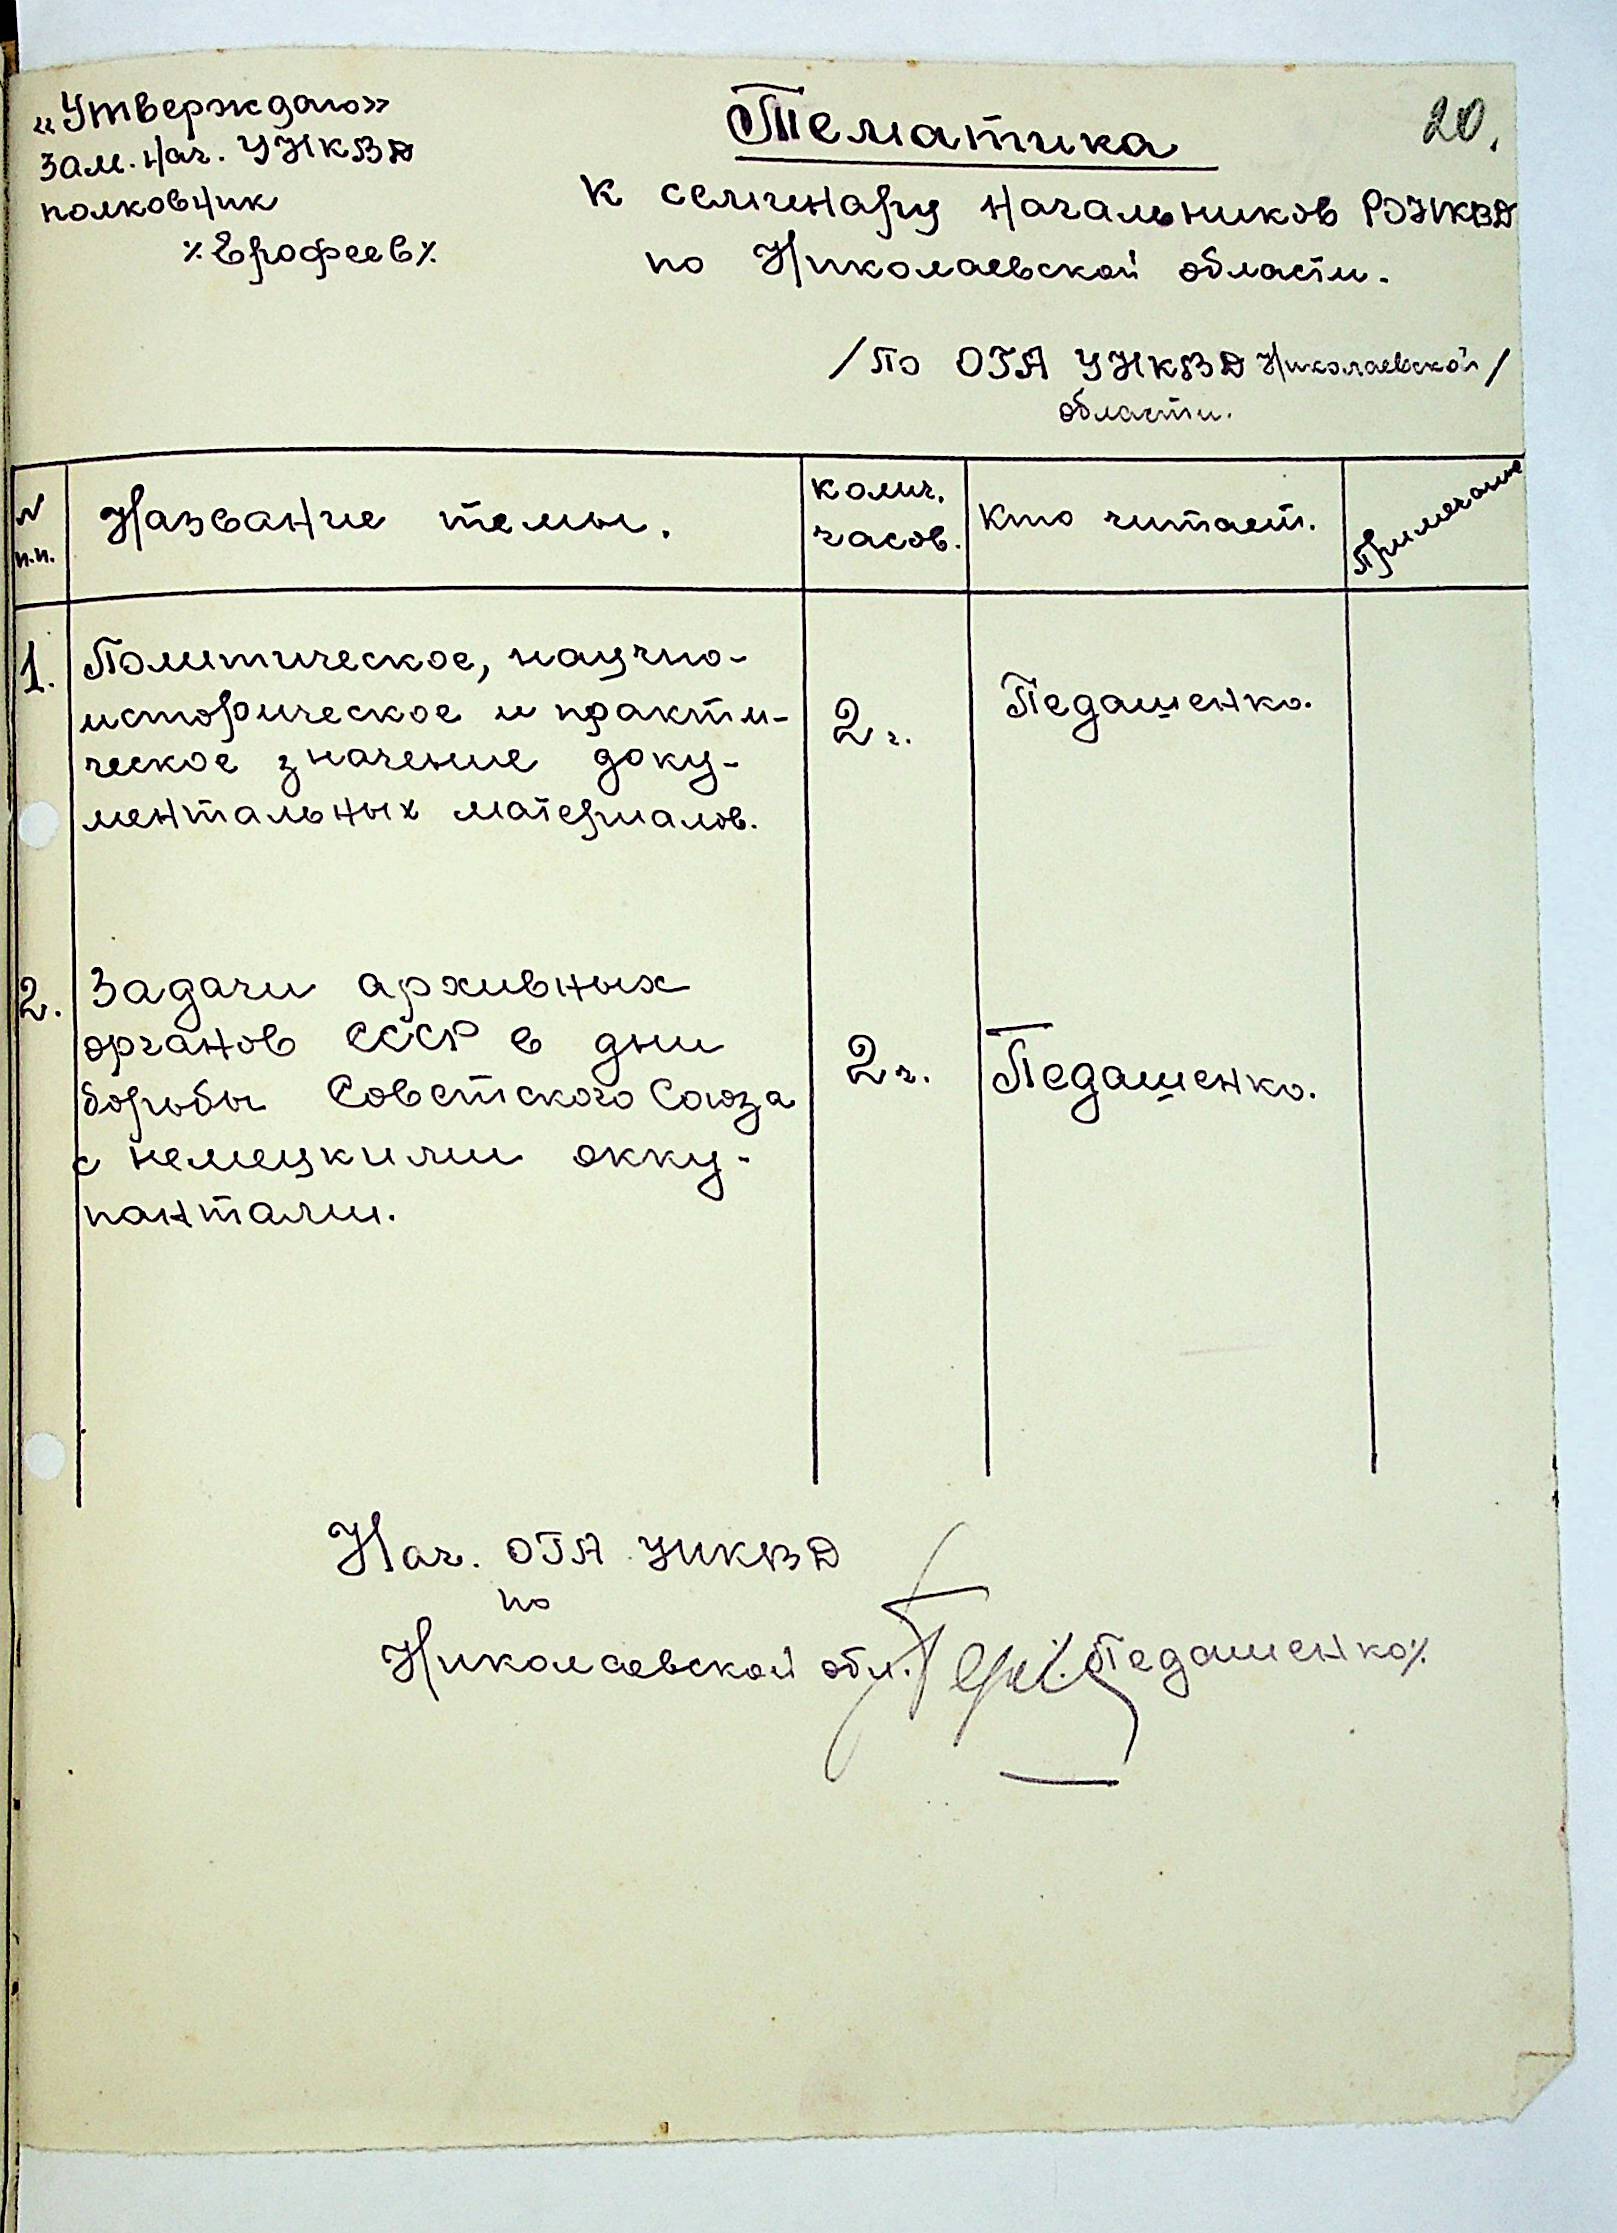 «Утверждаю»
зам. нач. УНКВД
полковник
٪Ерофеев٪
20.
Тематика
к семинару начальников РОНКВД
по Николаевской области.
/По ОГА УНКВД Николаевской/
области.
N п.п.
Название темы.
колич. часов.
Кто читает.
Примечание
1.
Политическое, научно-
историческое и практи-
ческое значение доку-
ментальных материалов.
2 ч.
Педашенко.
2.
Задачи архивных
органов СССР в дни
борьбы Советского Союза
с немецкими окку-
пантами.
2 ч.
Педашенко.
Нач. ОГА УНКВД
по
Николаевской обл. ٪Педашенко٪